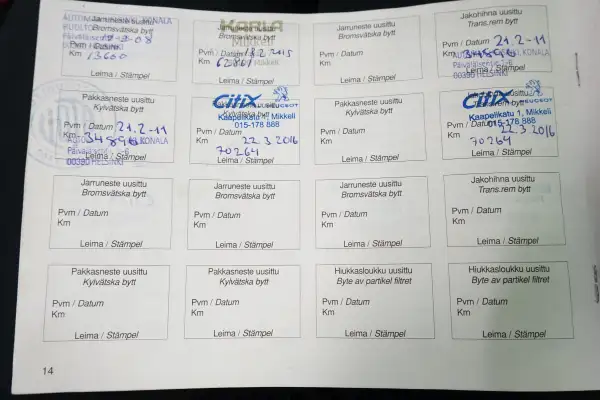 Jarruneste uusittu
Bromsvätska bytt
Pvm / Datum
Km 13600
Leima / Stämpel
KAARLA
Mikkeli
Bromsvätska bytt
Pvm / Datum 18.2.2015
Km 62801
Leima / Stämpel
Jarruneste uusittu
Bromsvätska bytt
Pvm / Datum
Km
Leima / Stämpel
Jakohihna uusittu
Trans.rem bytt
Pvm / Datum 21.2-11
Km 34896
KONALA
00390 HELSINKI
Leima / Stämpel
Pakkasneste uusittu
Kylvätska bytt
Pvm / Datum 21.2-11
Km 34896 KONALA
00390 HELSINKI
Leima / Stämpel
Citix PEUGEOT
Kaapelikatu 1, Mikkeli
015-178 888
22.3 2016
Km 70264
Leima / Stämpel
Pakkasneste uusittu
Kylvätska bytt
Pvm / Datum
Km
Leima / Stämpel
Citix PEUGEOT
Kaapelikatu 1, Mikkeli
Pvm / Datum 015-178 888
22.3 2016
Km 70264
Leima / Stämpel
Jarruneste uusittu
Bromsvätska bytt
Pvm / Datum
Km
Leima / Stämpel
Jarruneste uusittu
Bromsvätska bytt
Pvm / Datum
Km
Leima / Stämpel
Jarruneste uusittu
Bromsvätska bytt
Pvm / Datum
Km
Leima / Stämpel
Jakohihna uusittu
Trans.rem bytt
Pvm / Datum
Km
Leima / Stämpel
Pakkasneste uusittu
Kylvätska bytt
Pvm / Datum
Km
Leima / Stämpel
Pakkasneste uusittu
Kylvätska bytt
Pvm / Datum
Km
Leima / Stämpel
Hiukkasloukku uusittu
Byte av partikel filtret
Pvm / Datum
Km
Leima / Stämpel
Hiukkasloukku uusittu
Byte av partikel filtret
Pvm / Datum
Km
Leima / Stämpel
14